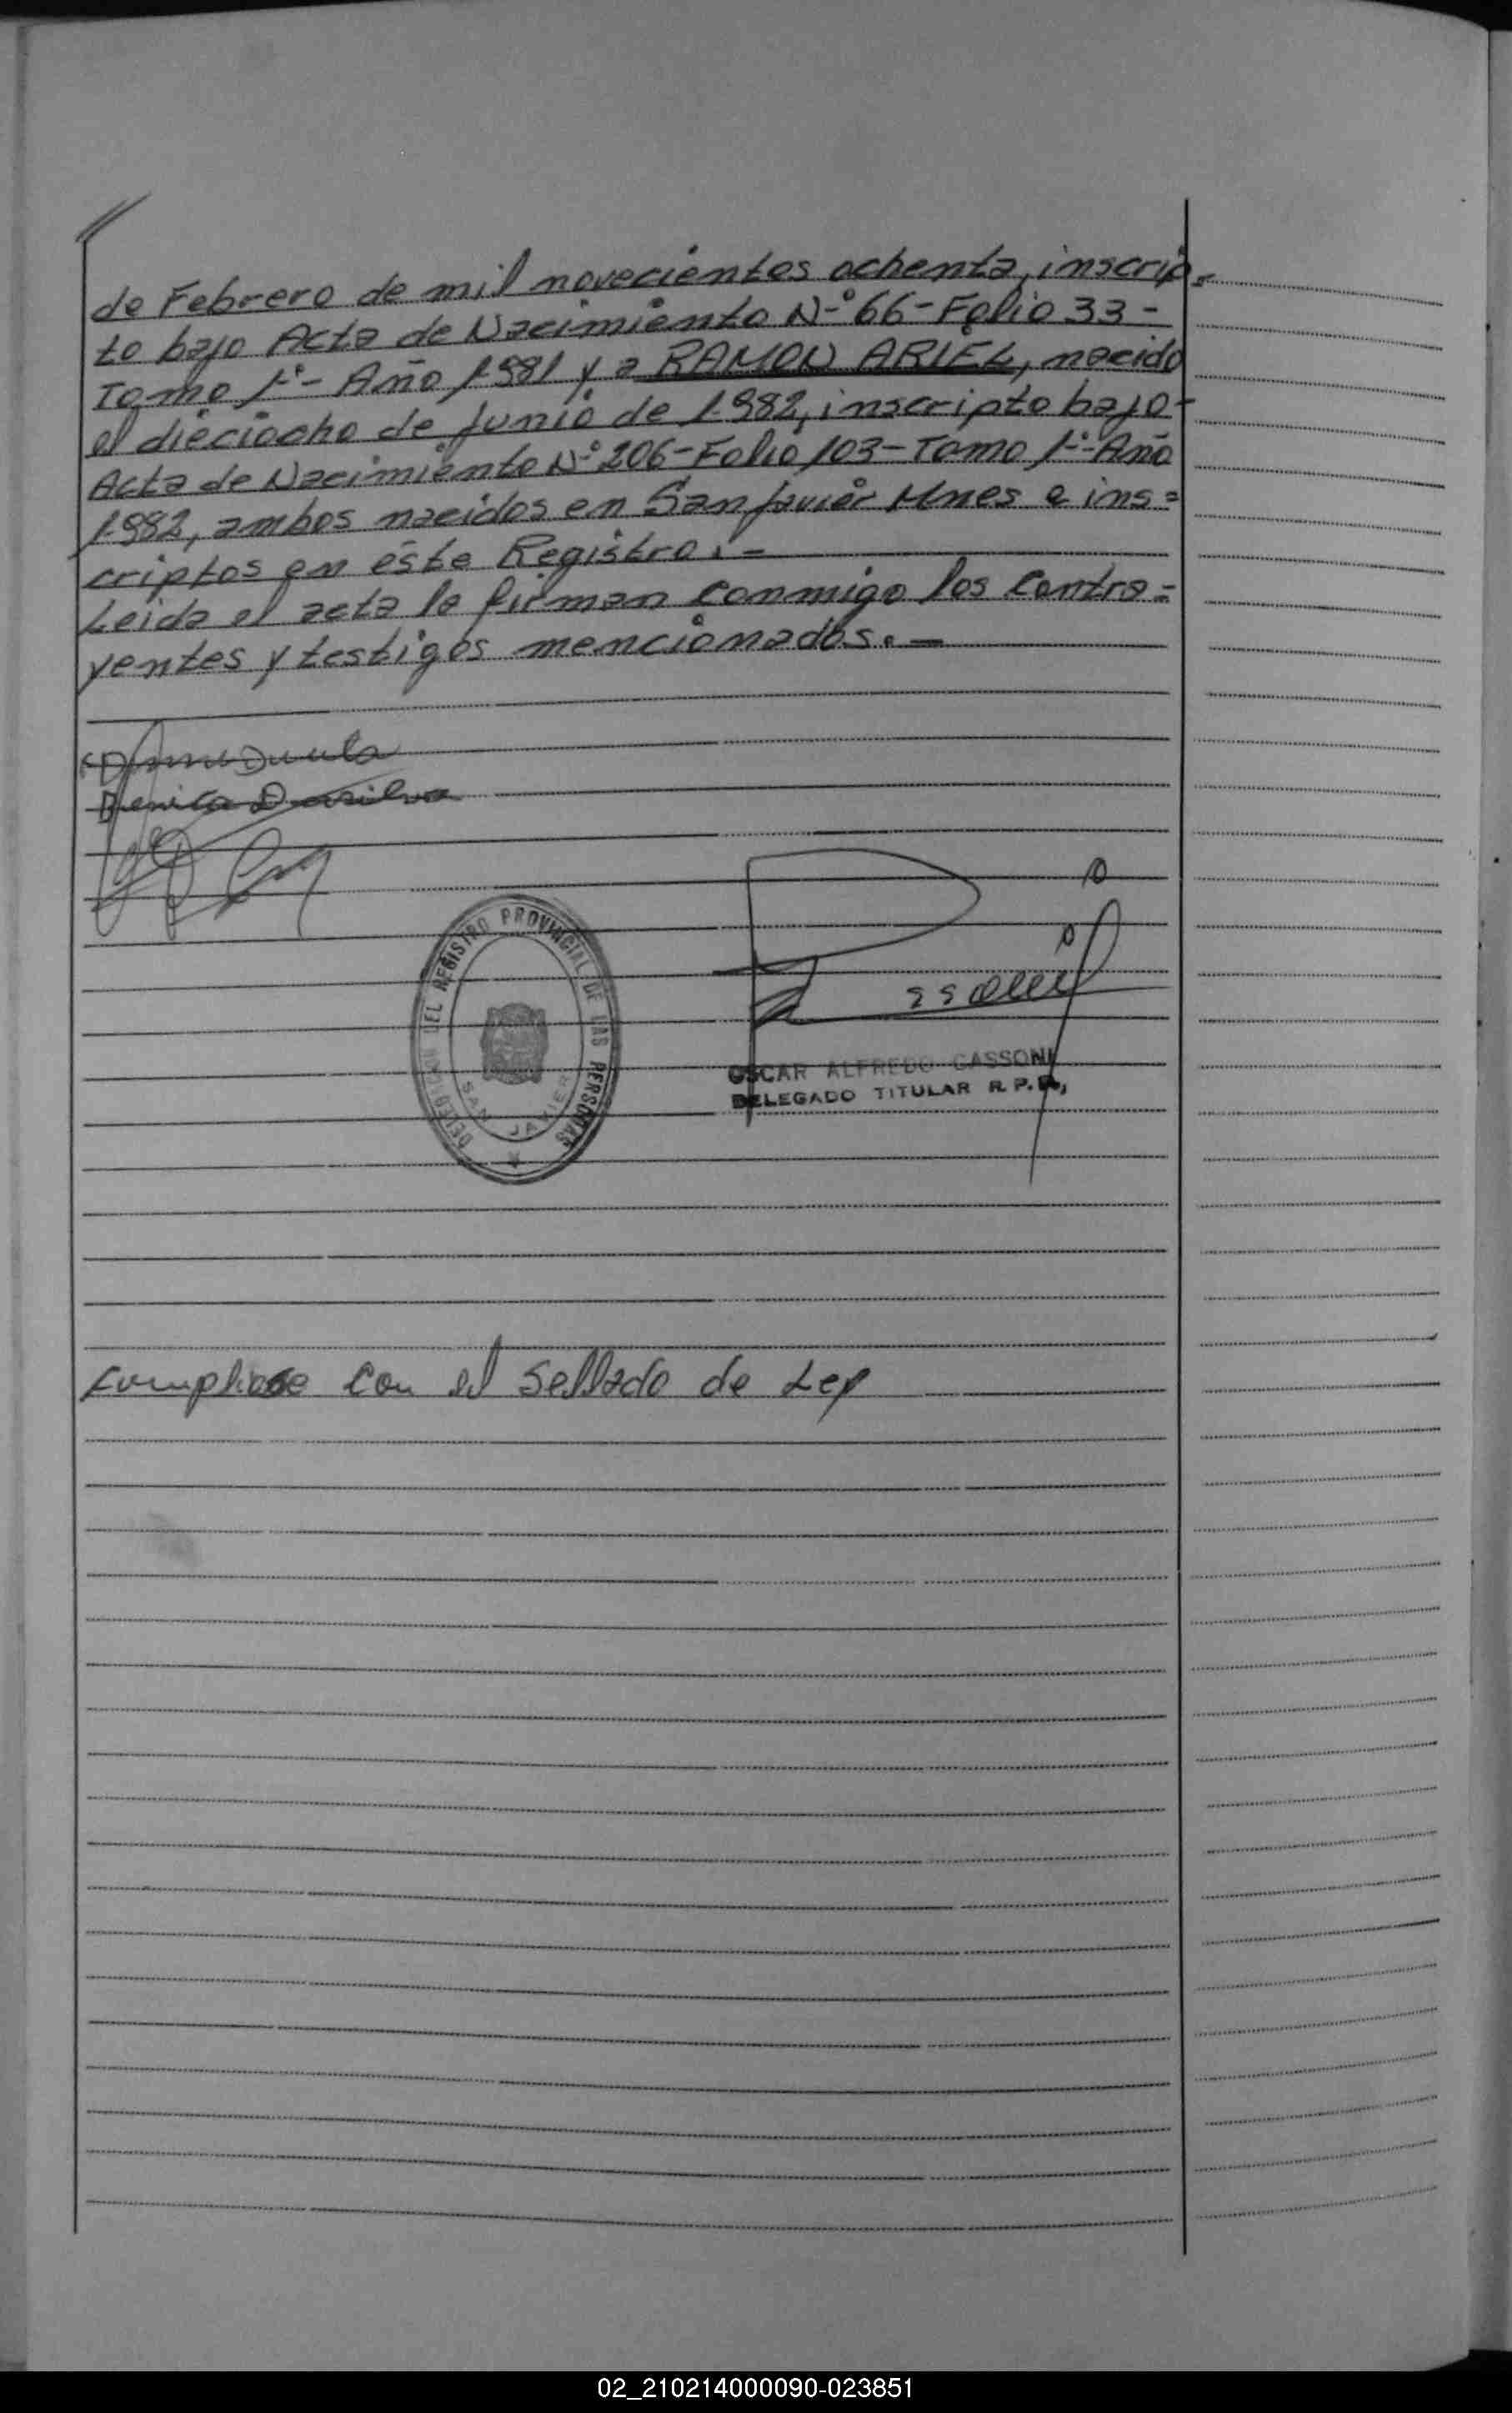 de Febrero de mil novecientos ochenta, inscrip-
to bajo Acta de Nacimiento Nº 66-Folio 33-
Tomo 1º- Año 1981 y a RAMON ARIEL, nacido
el dieciocho de Junio de 1982, inscripto bajo-
Acta de Nacimiento Nº 206-Folio 103-Tomo 1º-Año
1982, ambos nacidos en San Javier Mnes e ins=
criptos en éste Registro.-
Leida el acta la firman conmigo los contra=
yentes y testigos mencionados.-
Benita Dasilva
DELEGACION DEL REGISTRO PROVINCIAL DE LAS PERSONAS
SAN JAVIER
OSCAR ALFREDO CASSONI
DELEGADO TITULAR R. P. P,
cumplase con el sellado de Ley
02_210214000090-023851